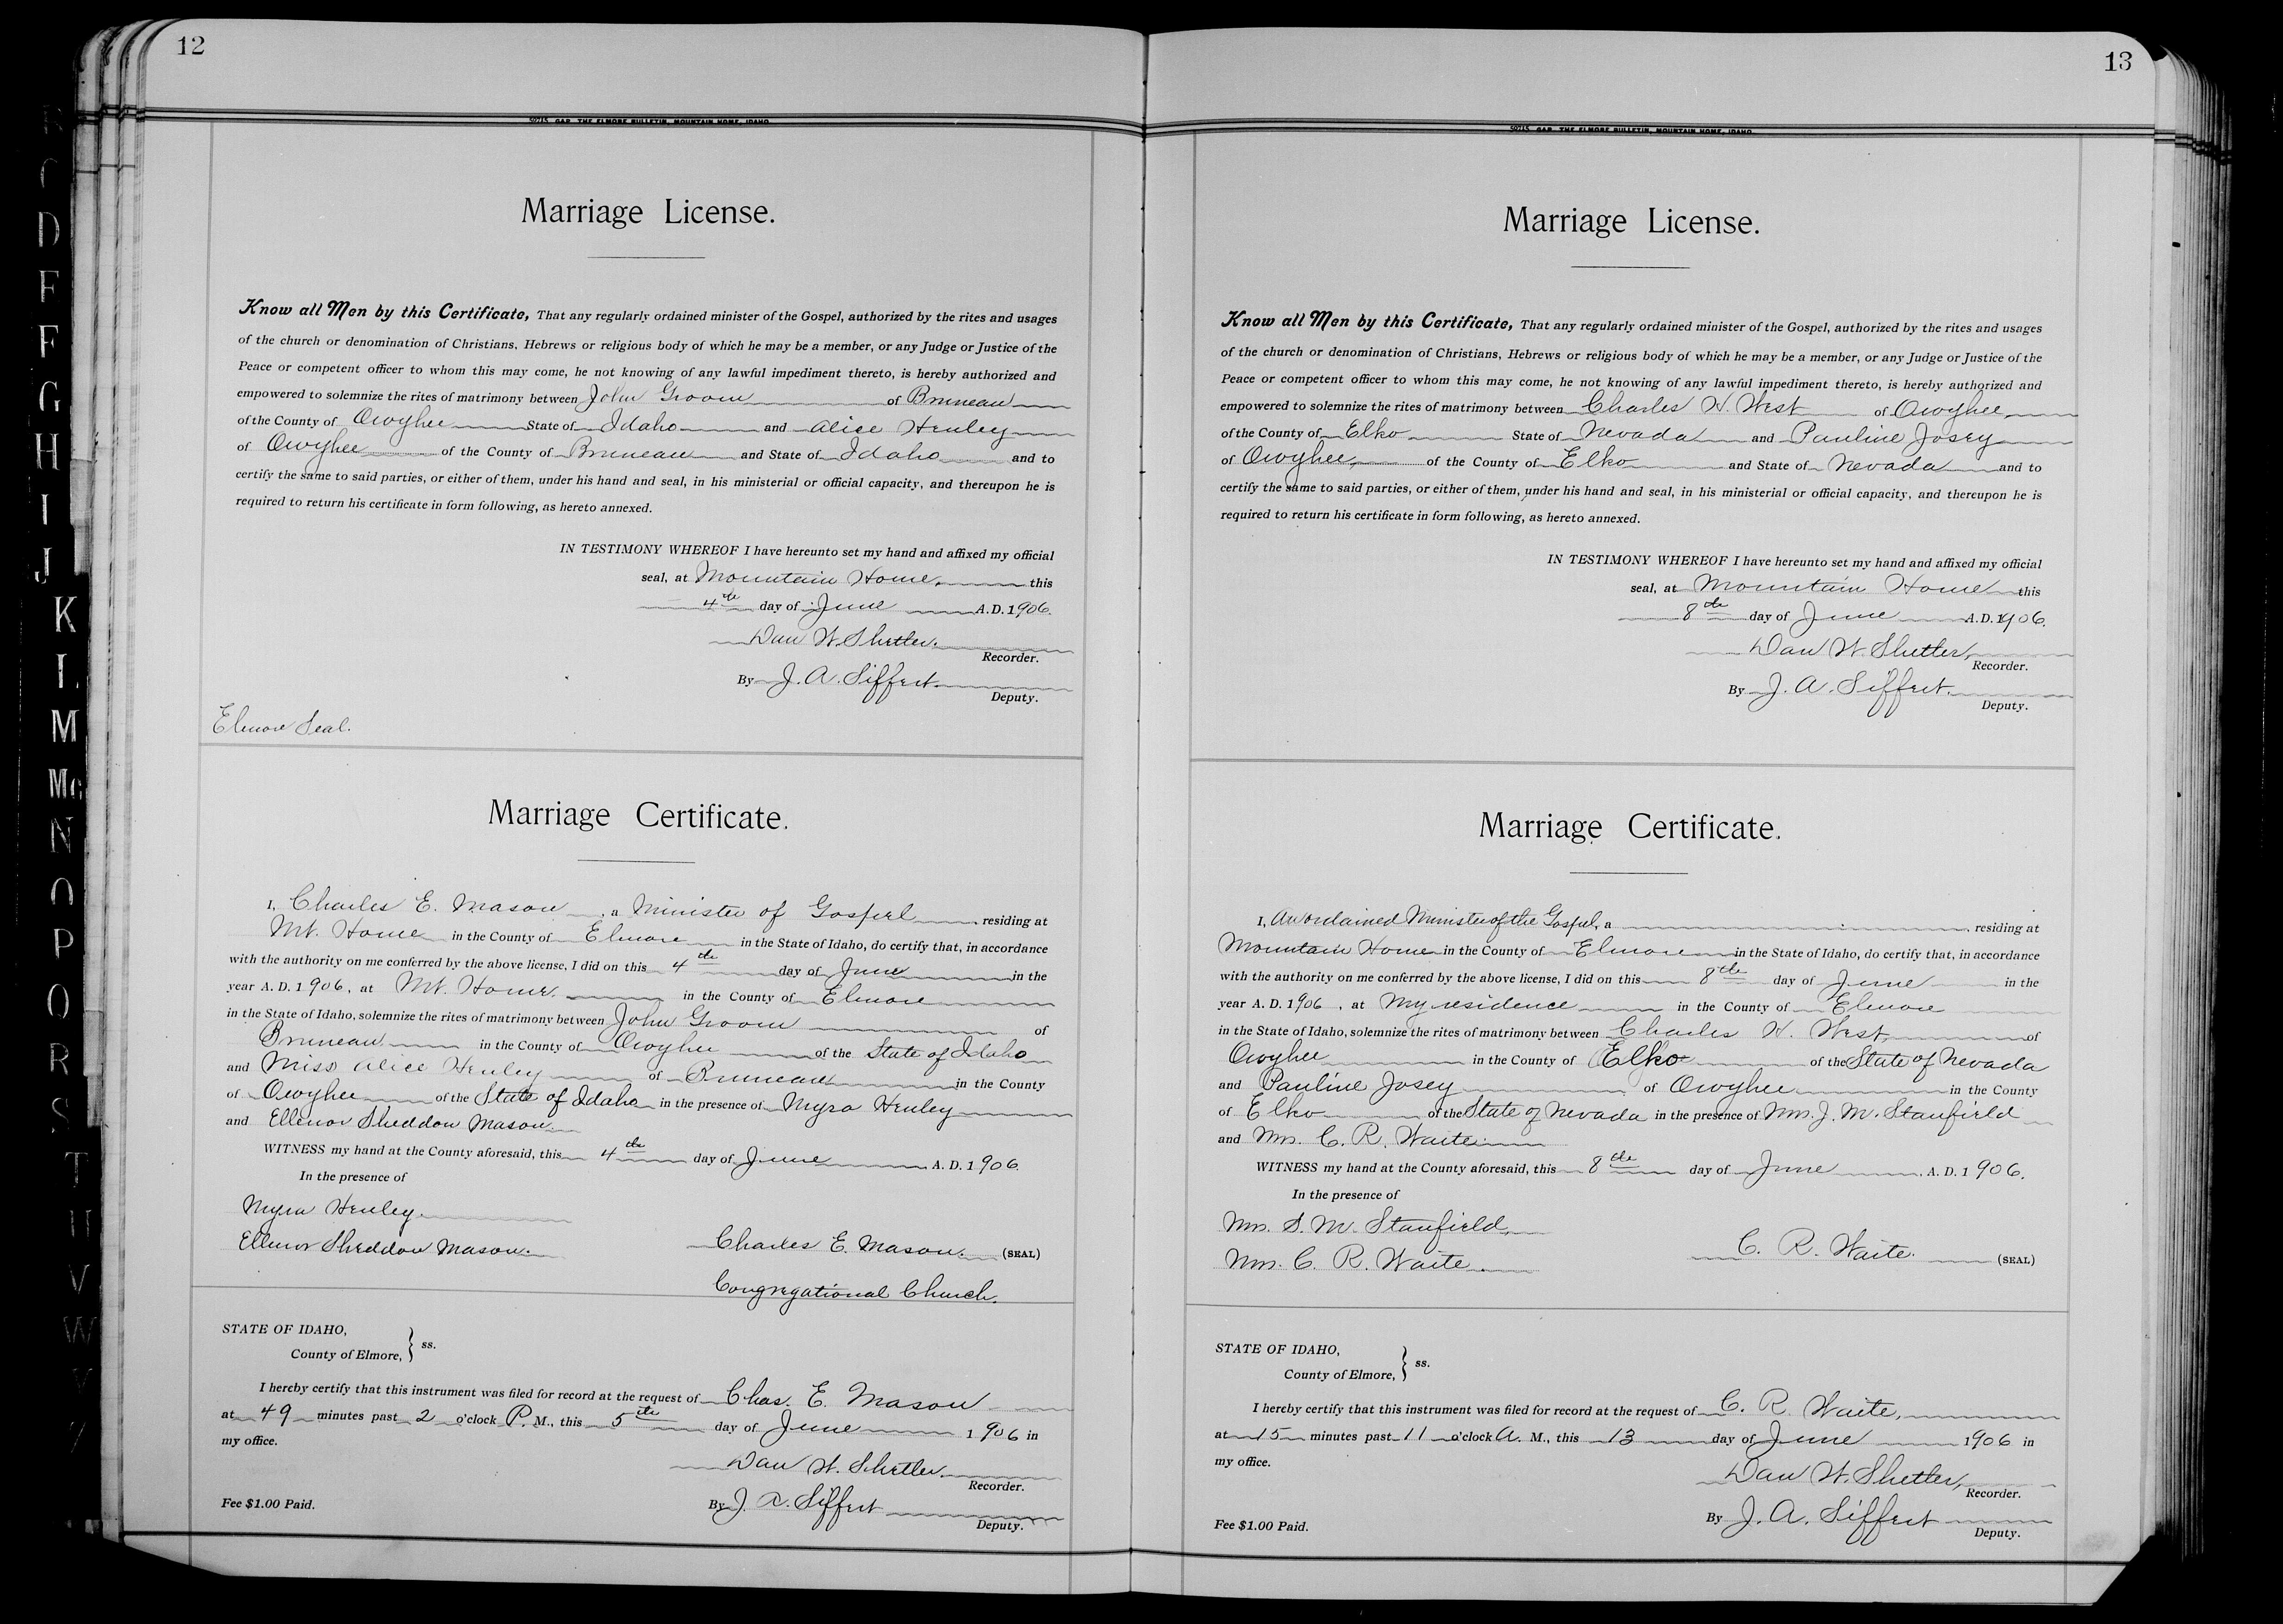 12
50715 GAP. THE ELMORE BULLETIN, MOUNTAIN HOME, IDAHO
Marriage License.
Know all Men by this Certificate, That any regularly ordained minister of the Gospel, authorized by the rites and usages
of the church or denomination of Christians, Hebrews or religious body of which he may be a member, or any Judge or Justice of the
Peace or competent officer to whom this may come, he not knowing of any lawful impediment thereto, is hereby authorized and
empowered to solemnize the rites of matrimony between John Groom of Bruneau
of the County of Owyhee State of Idaho and Alice Henley
of Owyhee of the County of Bruneau and State of Idaho and to
certify the same to said parties, or either of them, under his hand and seal, in his ministerial or official capacity, and thereupon he is
required to return his certificate in form following, as hereto annexed.
IN TESTIMONY WHEREOF I have hereunto set my hand and affixed my official
seal, at Mountain Home, this
4th day of June A.D. 1906.
Dan W. Shetler.
Recorder.
By J. A. Siffert.
Deputy.
Elmore Seal.
Marriage Certificate.
I, Charles E. Mason, a Minister of Gosperl residing at
Mt. Home in the County of Elmore in the State of Idaho, do certify that, in accordance
with the authority on me conferred by the above license, I did on this 4th day of June in the
year A. D. 1906, at Mt. Home. in the County of Elmore
in the State of Idaho, solemnize the rites of matrimony between John Groom of
Bruneau in the County of Owyhee of the State of Idaho
and Miss Alice Henley of Bruneau in the County
of Owyhee of the State of Idaho in the presence of Myra Henley
and Ellenor Sheddon Mason.
WITNESS my hand at the County aforesaid, this 4th day of June A. D. 1906.
In the presence of
Myra Henley.
Ellenor Sheddon Mason.
Charles E. Mason. (SEAL)
Congregational Church.
STATE OF IDAHO,
County of Elmore, } ss.
I hereby certify that this instrument was filed for record at the request of Chas. E. Mason
at 49 minutes past 2 o'clock P. M., this 5th day of June 1906 in
my office.
Dan W. Shetler.
Recorder.
Fee $1.00 Paid.
By J. A. Siffert
Deputy.
13
50715 GAP. THE ELMORE BULLETIN, MOUNTAIN HOME, IDAHO
Marriage License.
Know all Men by this Certificate, That any regularly ordained minister of the Gospel, authorized by the rites and usages
of the church or denomination of Christians, Hebrews or religious body of which he may be a member, or any Judge or Justice of the
Peace or competent officer to whom this may come, he not knowing of any lawful impediment thereto, is hereby authorized and
empowered to solemnize the rites of matrimony between Charles W. West of Owyhee,
of the County of Elko State of Nevada and Pauline Josey
of Owyhee, of the County of Elko and State of Nevada and to
certify the same to said parties, or either of them, under his hand and seal, in his ministerial or official capacity, and thereupon he is
required to return his certificate in form following, as hereto annexed.
IN TESTIMONY WHEREOF I have hereunto set my hand and affixed my official
seal, at Mountain Home this
8th day of June A.D. 1906.
Dan W. Shetler,
Recorder.
By J. A. Siffert.
Deputy.
Marriage Certificate.
I, An ordained Minister of the Gospel, a residing at
Mountain Home in the County of Elmore in the State of Idaho, do certify that, in accordance
with the authority on me conferred by the above license, I did on this 8th day of June in the
year A. D. 1906, at My residence in the County of Elmore
in the State of Idaho, solemnize the rites of matrimony between Charles W. West, of
Owyhee in the County of Elko of the State of Nevada
and Pauline Josey of Owyhee in the County
of Elko of the State of Nevada in the presence of Mrs. J. M. Stanfield
and Mrs. C. R. Waite.
WITNESS my hand at the County aforesaid, this 8th day of June A. D. 1906.
In the presence of
Mrs. S. M. Stanfield,
Mrs. C. R. Waite.
C. R. Waite. (SEAL)
STATE OF IDAHO,
County of Elmore, } ss.
I hereby certify that this instrument was filed for record at the request of C. R. Waite,
at 15 minutes past 11 o'clock A. M., this 13 day of June 1906 in
my office.
Dan W. Shetler,
Recorder.
Fee $1.00 Paid.
By J. A. Siffert
Deputy.
D
E
F
G
H
I
J
K
L
M
Mc
N
O
P
Q
R
S
T
U
V
W
Y
Z